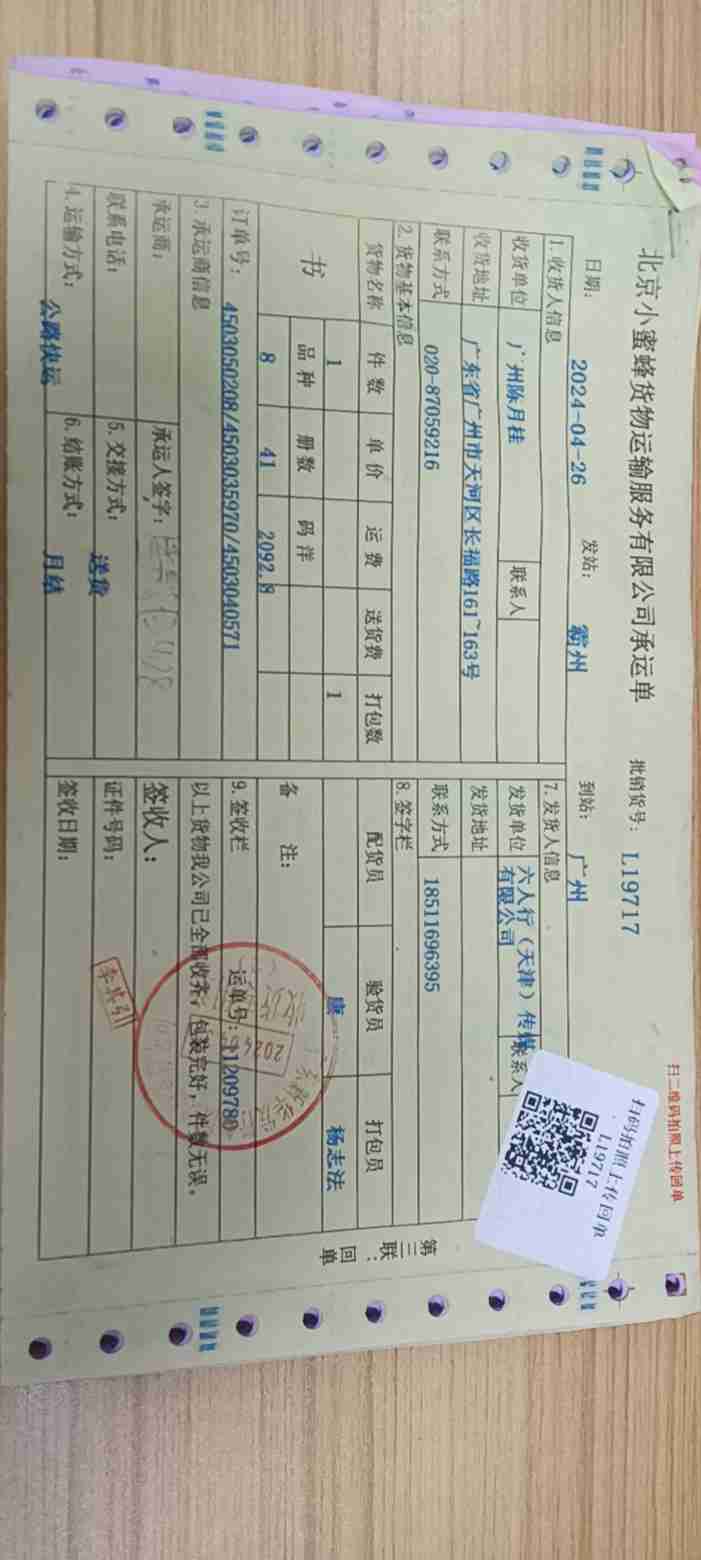 扫二维码拍照上传回单
北京小蜜蜂货物运输服务有限公司承运单 批销货号: L19717
扫码拍照上传回单
L19717
日期: 2024-04-26 发站: 霸州 到站: 广州
1.收货人信息
收货单位 广州陈月桂 联系人
收货地址 广东省广州市天河区长福路161~163号
联系方式 020-87059216
2.货物基本信息
货物名称 件数 单价 运费 送货费 打包数
书 1 1
品种 册数 码洋
8 41 2092.8
订单号: 4503050208/4503035970/4503040571
3.承运商信息
承运商: 承运人签字:
联系电话: 5.交接方式: 送货
4.运输方式: 公路快运 6.结账方式: 月结
7.发货人信息
发货单位 六人行(天津)传媒有限公司 联系人
发货地址
联系方式 18511696395
8.签字栏
配货员 验货员 打包员
唐 杨志法
备注:
运单号: 11209780
9.签收栏
以上货物我公司已全部收齐,包装完好,件数无误。
签收人:
证件号码:
签收日期:
第三联:回单